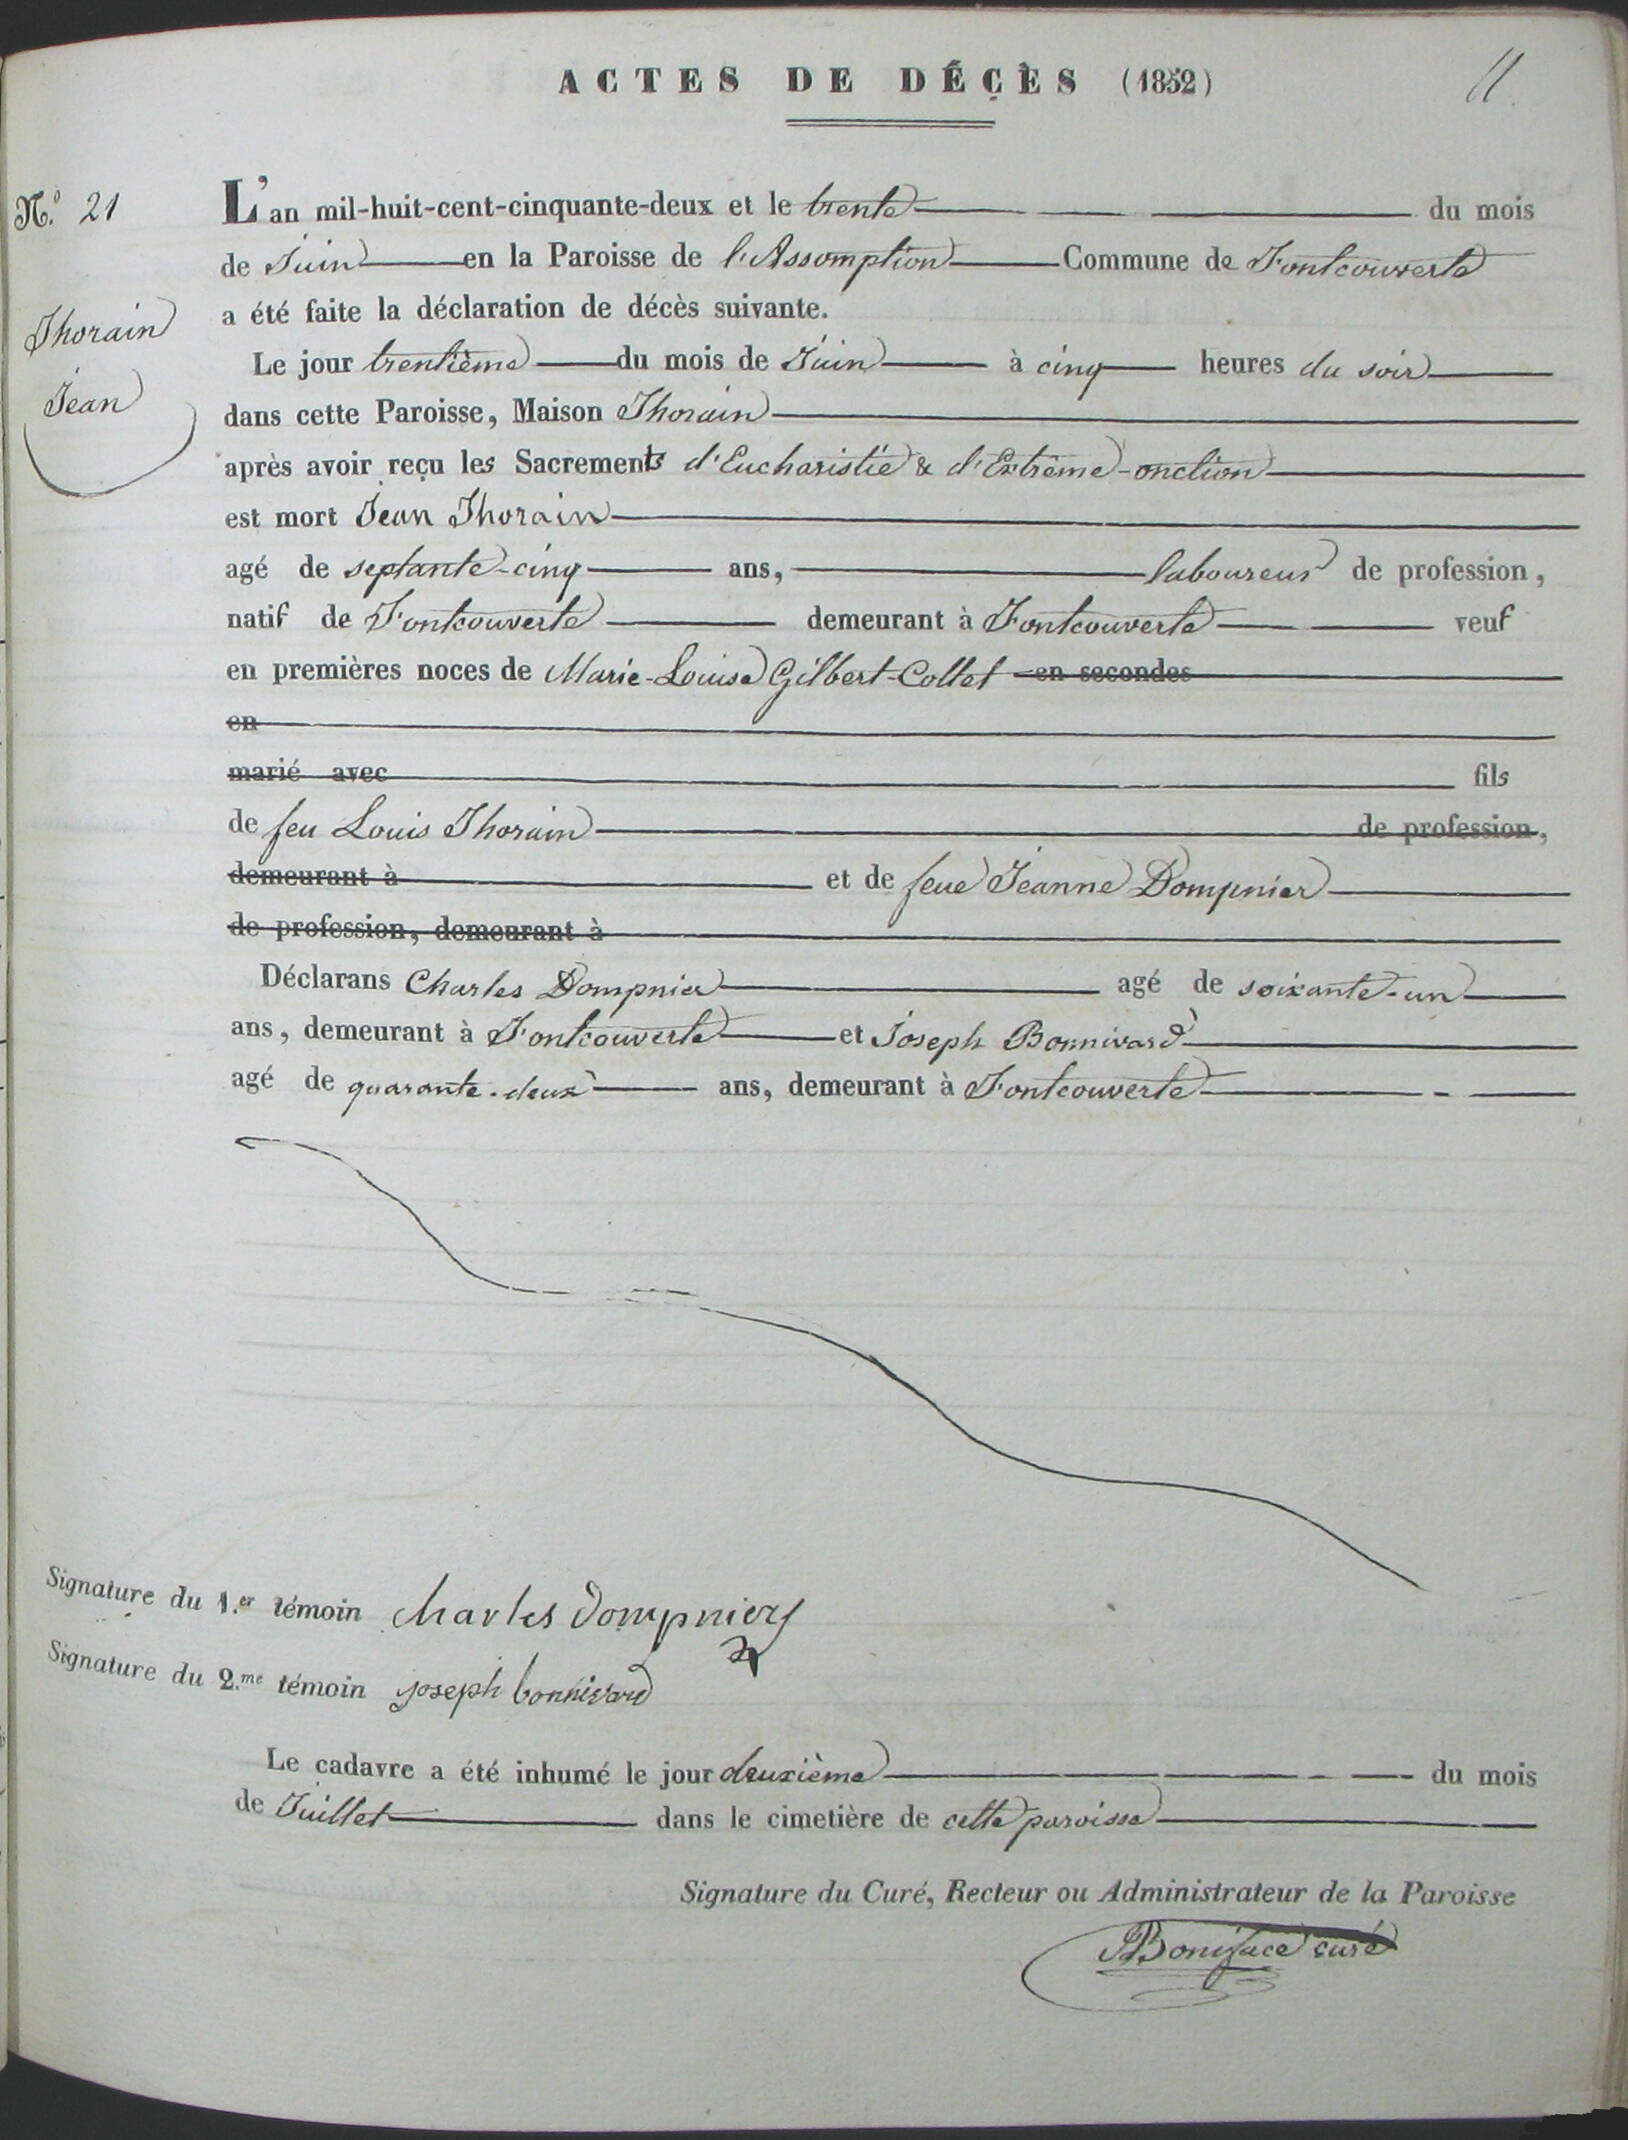 ACTES DE DÉCÈS (1852)
11
N.o 21
Thorain
Jean
L'an mil-huit-cent-cinquante-deux et le trente du mois
de Juin en la Paroisse de l'Assomption Commune de Fontcouverte
a été faite la déclaration de décès suivante.
Le jour trentième du mois de Juin à cinq heures du soir
dans cette Paroisse, Maison Thorain
après avoir reçu les Sacrements d'Eucharistie & d'Extrême-onction
est mort Jean Thorain
agé de septante-cinq ans, laboureur de profession,
natif de Fontcouverte demeurant à Fontcouverte veuf
en premières noces de Marie-Louise Gilbert-Collet en secondes
en
marié avec fils
de feu Louis Thorain de profession,
demeurant à et de feue Jeanne Dompnier
de profession, demeurant à
Déclarans Charles Dompnier agé de soixante-un
ans, demeurant à Fontcouverte et Joseph Bonnivard
agé de quarante-deux ans, demeurant à Fontcouverte
Signature du 1.er témoin charles dompnier
Signature du 2.me témoin joseph bonnivard
Le cadavre a été inhumé le jour deuxième du mois
de Juillet dans le cimetière de cette paroisse
Signature du Curé, Recteur ou Administrateur de la Paroisse
Boniface curé